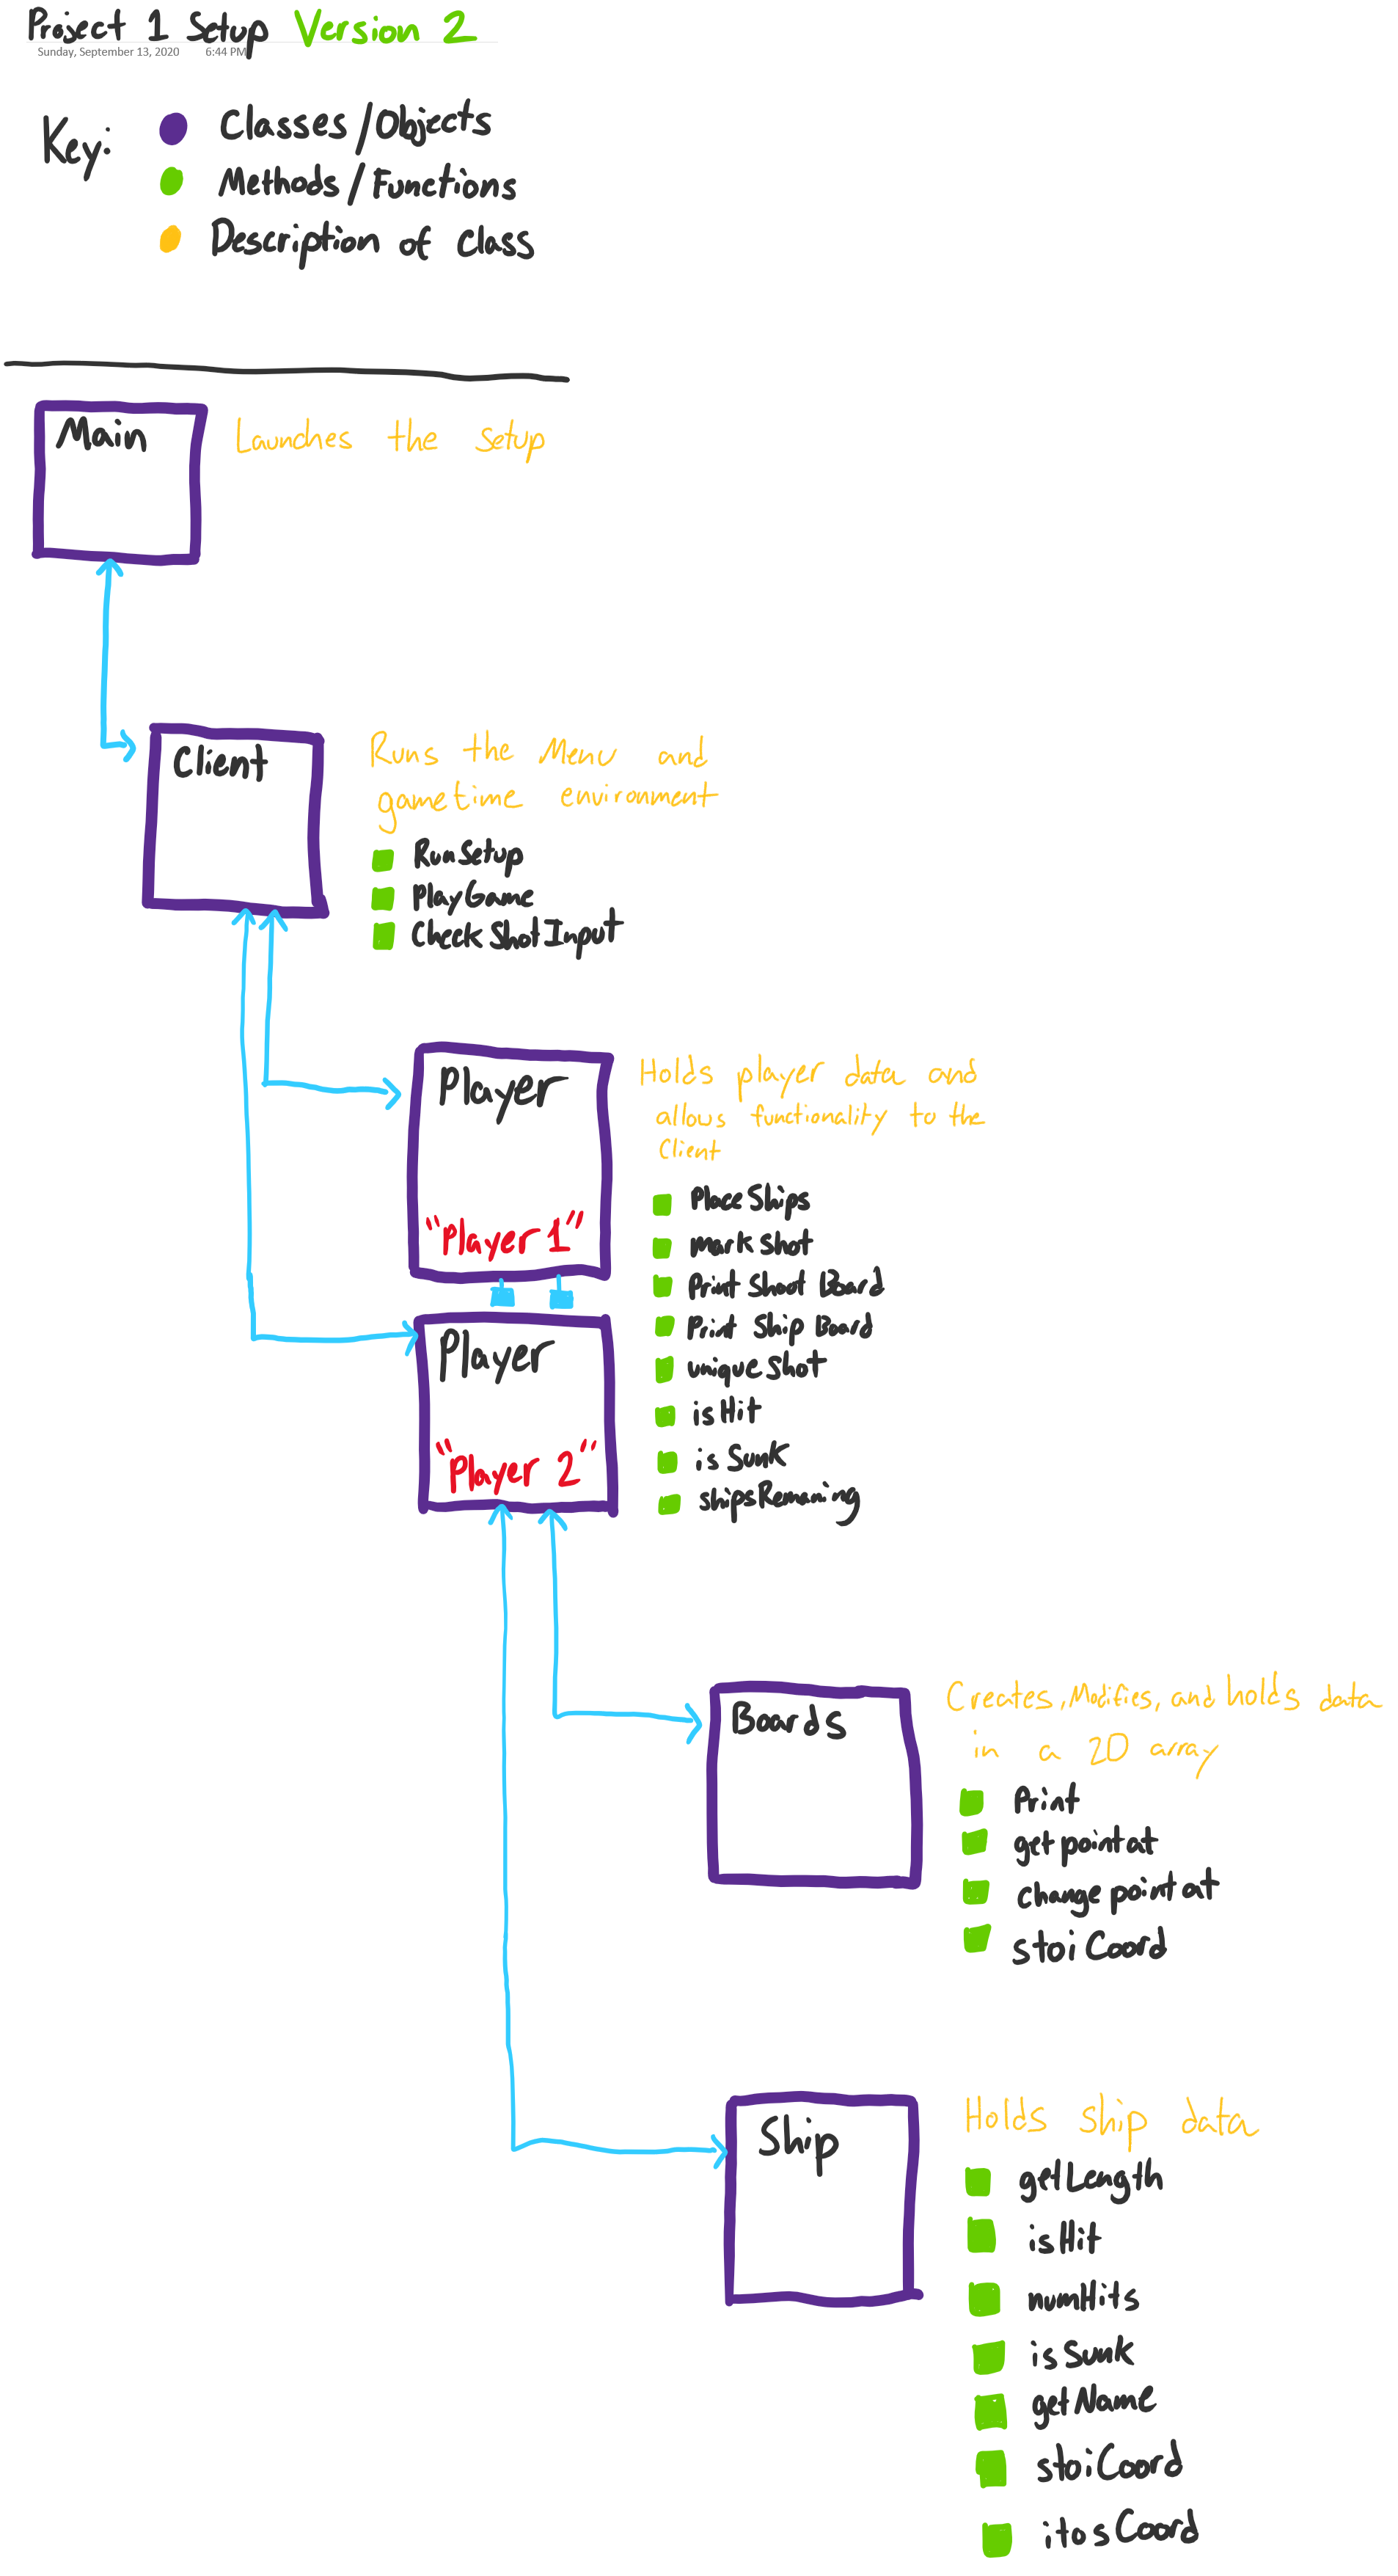 Project 1 Setup Version 2
Sunday, September 13, 2020 6:44 PM
Key:
Classes/Objects
Methods/Functions
Description of class
Main
Launches the setup
Client
Runs the Menu and
gametime environment
RunSetup
PlayGame
CheckShotInput
Player
"Player 1"
Holds player data and
allows functionality to the
Client
PlaceShips
markShot
Print Shoot Board
Print Ship Board
uniqueShot
isHit
isSunk
shipsRemaning
Player
"Player 2"
Boards
Creates, Modifies, and holds data
in a 2D array
Print
getpointat
changepointat
stoiCoord
Ship
Holds ship data
getLength
isHit
numHits
isSunk
getName
stoiCoord
itosCoord